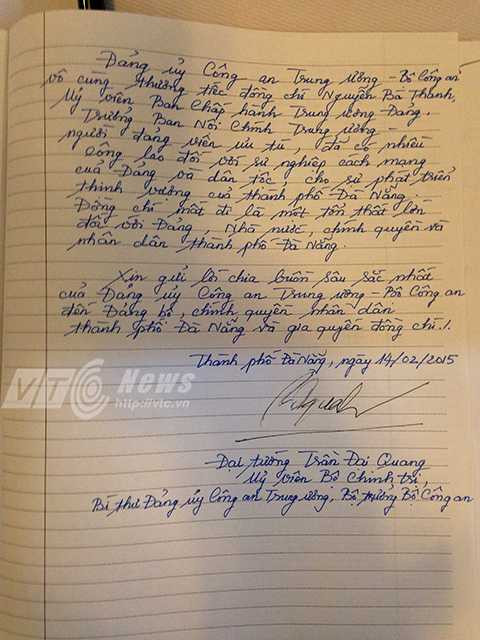 Đảng ủy Công an Trung ương - Bộ Công an
vô cùng thương tiếc đồng chí Nguyễn Bá Thanh,
Uỷ viên Ban Chấp hành Trung ương Đảng,
Trưởng Ban Nội Chính Trung ương -
người đảng viên ưu tú, đã có nhiều
công lao đối với sự nghiệp cách mạng
của Đảng và dân tộc, cho sự phát triển
thịnh vượng của thành phố Đà Nẵng.
Đồng chí mất đi là một tổn thất lớn
đối với Đảng, Nhà nước, chính quyền và
nhân dân thành phố Đà Nẵng.
Xin gửi lời chia buồn sâu sắc nhất
của Đảng ủy Công an Trung ương - Bộ Công an
đến Đảng bộ, chính quyền nhân dân
thành phố Đà Nẵng và gia quyến đồng chí./.
Thành phố Đà Nẵng, ngày 14/02/2015
VTC News
http://vtc.vn
Đại tướng Trần Đại Quang
Uỷ viên Bộ Chính trị,
Bí thư Đảng ủy Công an Trung ương, Bộ trưởng Bộ Công an